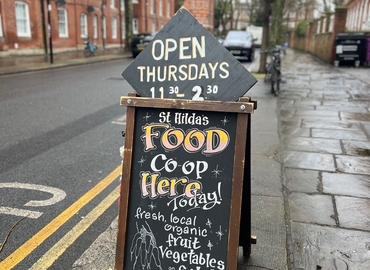 OPEN
THURSDAYS
11 30 - 2 30
St Hildas
FOOD
Co-oP
Here
Today!
fresh, local
organic
fruit
Vegetables